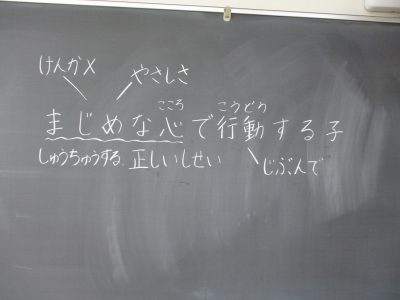 けんか× やさしさ
こころ こうどう
まじめな心で行動する子
しゅうちゅうする 正しいしせい じぶんで